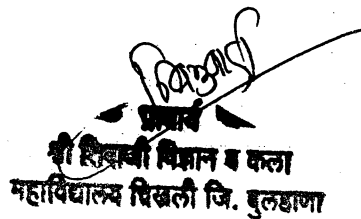 प्राचार्य
श्री शिवाजी विज्ञान व कला
महाविद्यालय चिखली जि. बुलढाणा